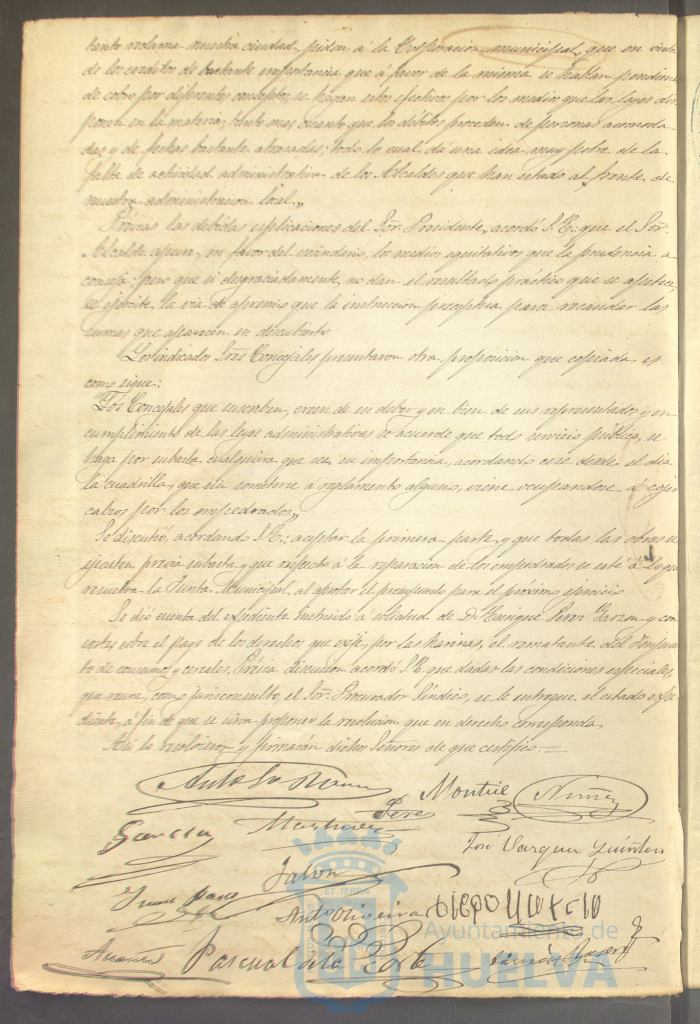 tanto reclama nuestra ciudad, piden á la Corporacion municipal, que en vista
de los creditos de bastante importancia que á favor de la misma se hallan pendientes
de cobro por diferentes conceptos, se hagan estos efectivos por los medios que las leyes dis
ponen en la materia; tanto mas cuanto que los debitos proceden de personas acomoda
das y de fechas bastante atrasadas; todo lo cual da una idea muy pobre de la
falta de actividad administrativa de los Alcaldes que han estado al frente de
nuestra administracion local.,,
Prévias las debidas esplicaciones del Sor. Presidente, acordó S.E.: que el Sor.
Alcalde apure, en favor del vecindario, los medios equitativos que la prudencia a
conseja: pero que si desgraciadamente, no dan el resultado práctico que se apetece,
se ejercite la via de apremio que la instruccion preceptua para recaudar las
sumas que aparecen en descubierto
Los indicados Sres. Concejales presentaron otra proposicion que copiada es
como sigue:
"Los Concejales que suscriben, creen de su deber y en bien de sus representados y en
cumplimiento de las leyes administrativas se acuerde que todo servicio público, se
haga por subasta cualquiera que sea su importancia, acordando cese desde el dia
la cuadrilla, que sin someterse á reglamento alguno, viene ocupandose á cojer
calvos por los empedrados,,
Se discutió, acordando S.E.: aceptar la primera parte y que todas las obras se
ejecuten prévia subasta y que respecto á la reparacion de los empedrados se esté á lo que
resuelva la Junta Municipal, al aprobar el presupuesto para el próximo ejercicio
Se dió cuenta del expediente instruido á solicitud de D. Enrique Perez Garzon y con
sortes sobre el pago de los derechos que exije, por las harinas, el rematante del Impues
to de consumos y cereales. Prévia discusion acordó S.E. que dadas las condiciones especiales,
que reune, como jurisconsulto, el Sor. Procurador Sindico, se le entregue el citado expe
diente, á fin de que se sirva proponer la resolucion que en derecho corresponda.
Asi lo resolvieron y firmarán dichos Señores de que certifico.
Montiel
Nuñez
Garcia
Martinez
Perez
José Vazquez Quintero
Jalon
Ant.o Oliveira
Diego
Pascual de la Corte
Ayuntamiento de
HUELVA